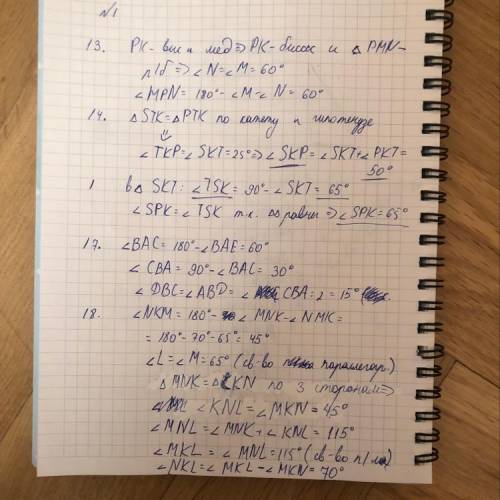 №1
13. PK - выс и мед ⇒ PK - бисс и △ PMN -
р/б ⇒ ∠N = ∠M = 60°
∠MPN = 180° - ∠M - ∠N = 60°
14. △STK = △PTK по катету и гипотенузе
⇓
∠TKP = ∠SKT = 25° ⇒ ∠SKP = ∠SKT + ∠PKT =
50°
1 в △ SKT: ∠TSK = 90° - ∠SKT = 65°
∠SPK = ∠TSK т.к. △ равны ⇒ ∠SPK = 65°
17. ∠BAC = 180° - ∠BAE = 60°
∠CBA = 90° - ∠BAC = 30°
∠DBC = ∠ABD = ∠CBA : 2 = 15°
18. ∠NKM = 180° - ∠MNK - ∠NMK =
= 180° - 70° - 65° = 45°
∠L = ∠M = 65° (св-во параллегр.)
△MNK = △LKN по 3 сторонам ⇒
∠KNL = ∠MKN = 45°
∠MNL = ∠MNK + ∠KNL = 115°
∠MKL = ∠MNL = 115° (св-во п/ма)
∠NKL = ∠MKL - ∠MKN = 70°